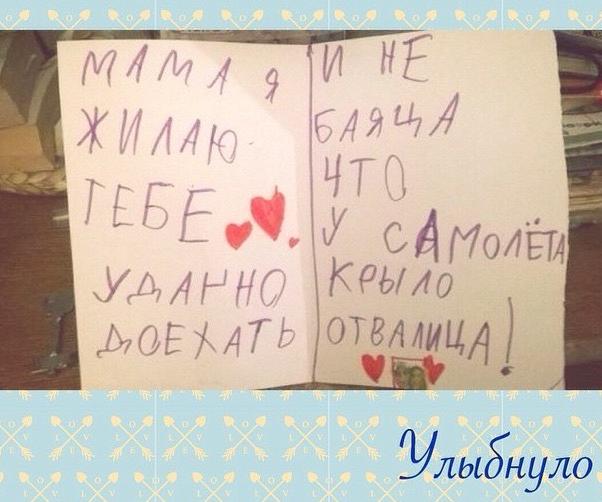 МАМА Я
ЖИЛАЮ
ТЕБЕ
УДАЧНО
ДОЕХАТЬ
И НЕ
БАЯЦА
ЧТО
У САМОЛЁТА
КРЫЛО
ОТВАЛИЦА!
Улыбнуло